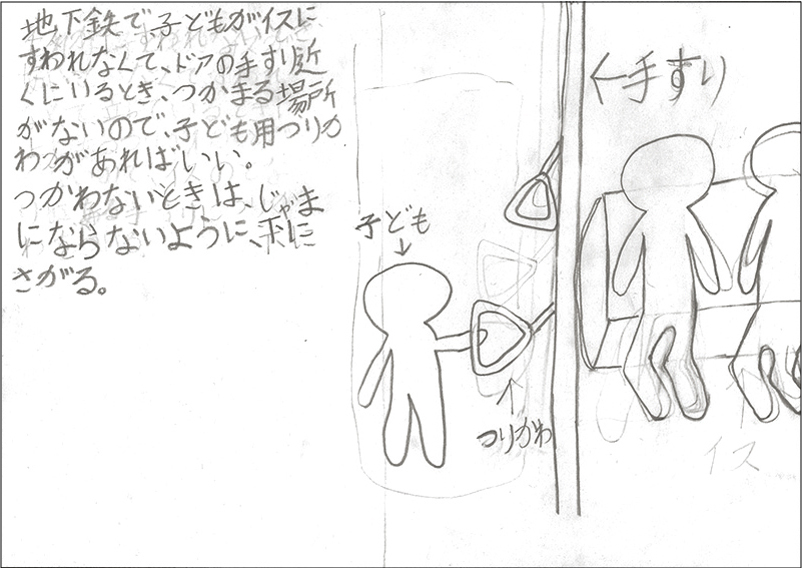 地下鉄で、子どもがイスに
すわれなくて、ドアの手すり近
くにいるとき、つかまる場所
がないので、子ども用つりか
わがあればいい。
つかわないときは、じゃま
にならないように、下に
さがる。
←手すり
子ども
つりかわ
イス